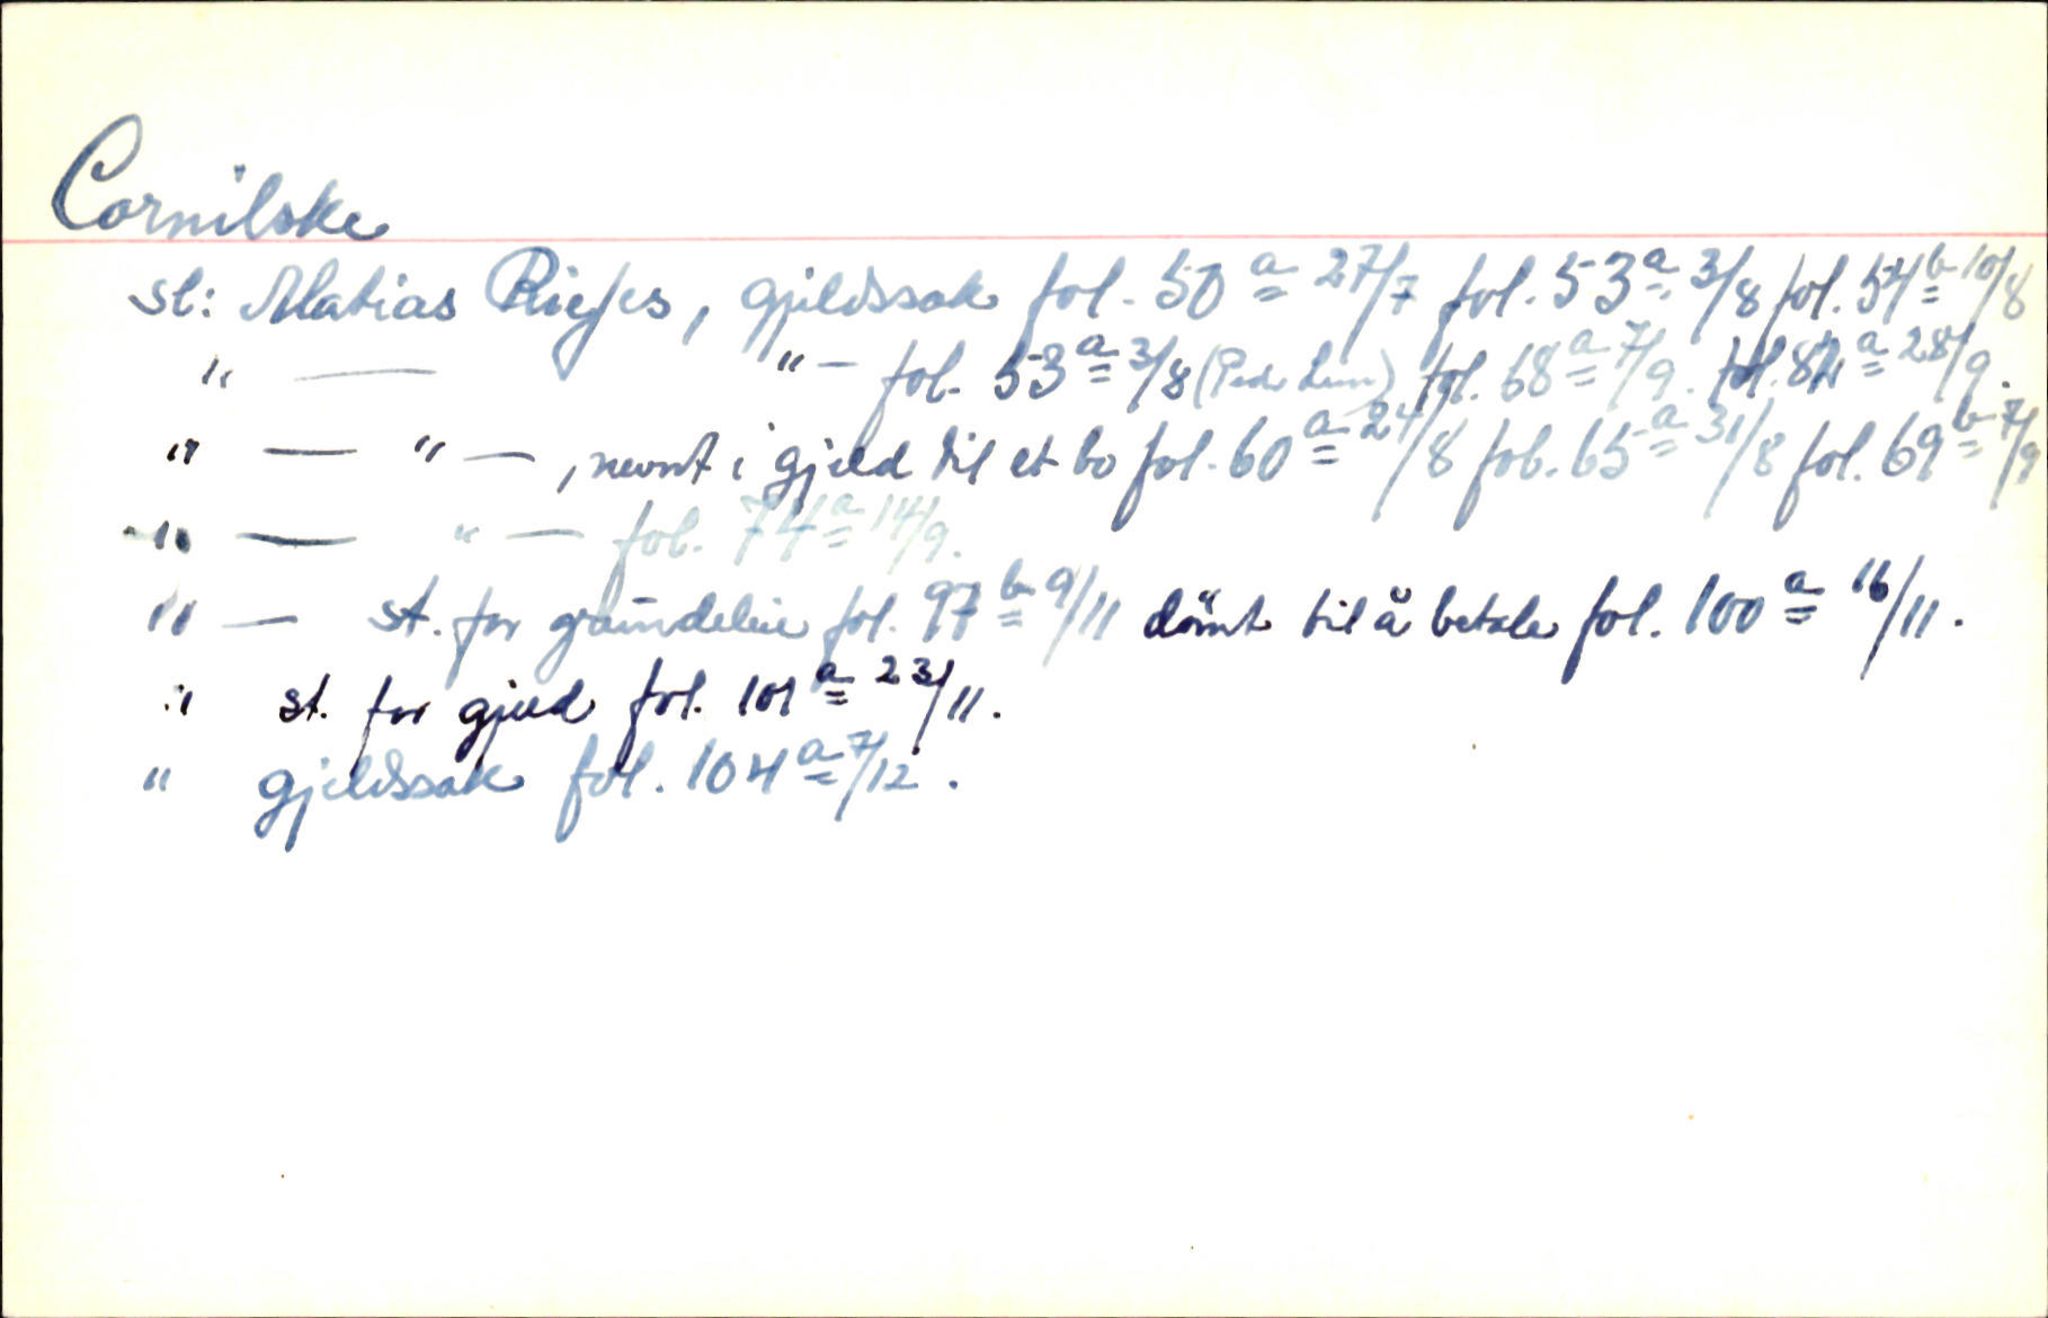 Cornilske
sl: Matias Riefes, gjeldssak fol. 50 a 27/7 fol. 53 a 3/8 fol. 54 b 10/8
" — " — fol. 53 a 3/8 (Peder ) fol. 68 a 7/9. fol. 82 a 28/9.
" — " —, nevnt i gjeld til et bo fol. 60 a 24/8 fol. 65 a 31/8 fol. 69 b 7/9
" — " — fol. 74 a 14/9.
" — st. for grundeleie fol. 97 b 9/11 dömt til å betale fol. 100 a 16/11.
" st. for gjeld fol. 101 a 23/11.
" gjeldssak fol. 104 a 7/12.